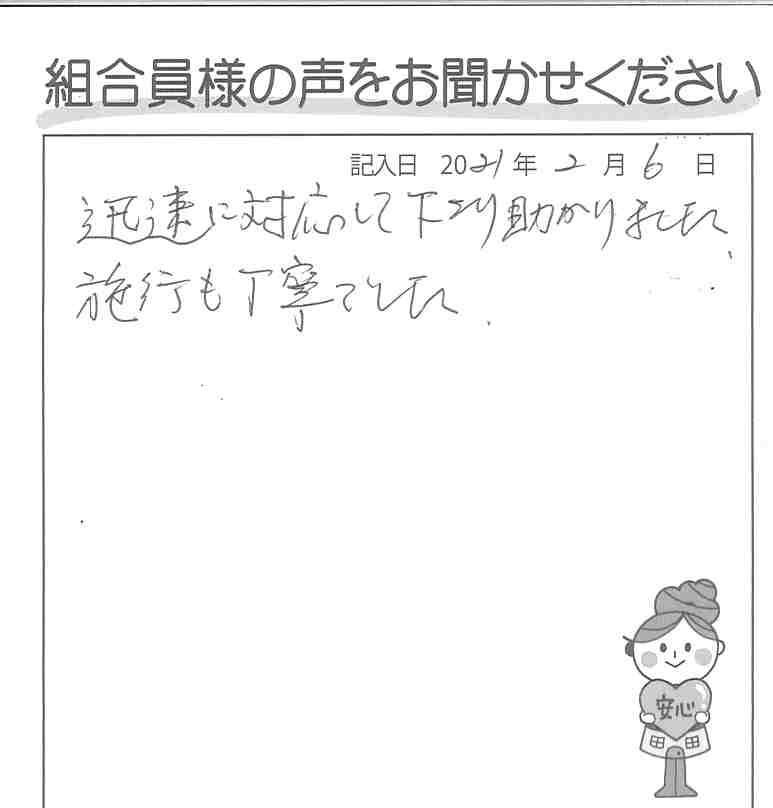 組合員様の声をお聞かせください
記入日 2021年 2月 6日
迅速に対応して下さり助かりました、
施行も丁寧でした.
安心